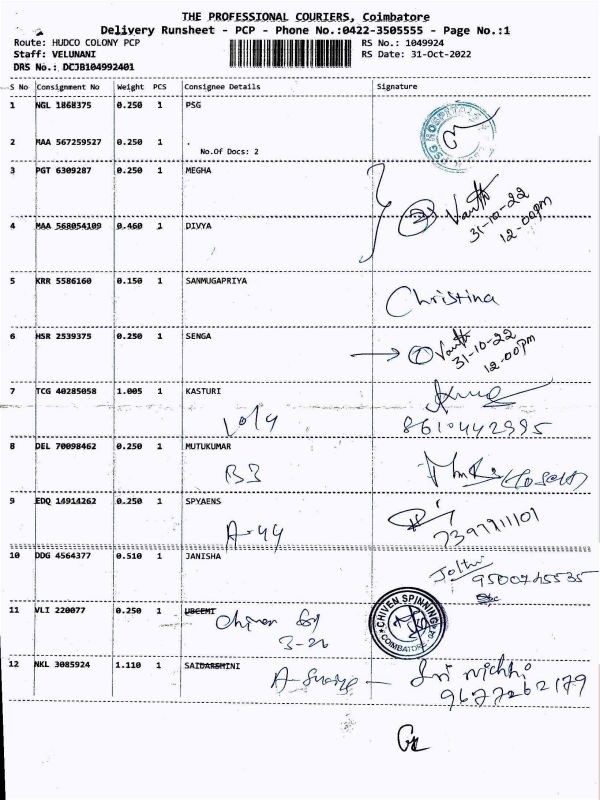 THE PROFESSIONAL COURIERS, Coimbatore
Delivery Runsheet - PCP - Phone No.:0422-3505555 - Page No.:1
Route: HUDCO COLONY PCP
RS No.: 1049924
Staff: VELUNANI
RS Date: 31-Oct-2022
DRS No.: DCJB104992401
S No Consignment No Weight PCS Consignee Details Signature
1 NGL 1868375 0.250 1 PSG
PSG HOSPITALS
2 MAA 567259527 0.250 1 .
No.Of Docs: 2
3 PGT 6309287 0.250 1 MEGHA
2
31-10-22
12-00pm
4 MAA 568054109 0.460 1 DIVYA
5 KRR 5586160 0.150 1 SANMUGAPRIYA
Christina
6 HSR 2539375 0.250 1 SENGA
1 31-10-22
12-00pm
7 TCG 40285058 1.005 1 KASTURI
8610442995
8 DEL 70098462 0.250 1 MUTUKUMAR
B3
9 EDQ 14914262 0.250 1 SPYAENS
A-44
10 DDG 4564377 0.510 1 JANISHA
9500745535
11 VLI 220077 0.250 1
CHIVEN SPINNING
COIMBATORE
12 NKL 3085924 1.110 1 SAIDARSHINI
9677262179